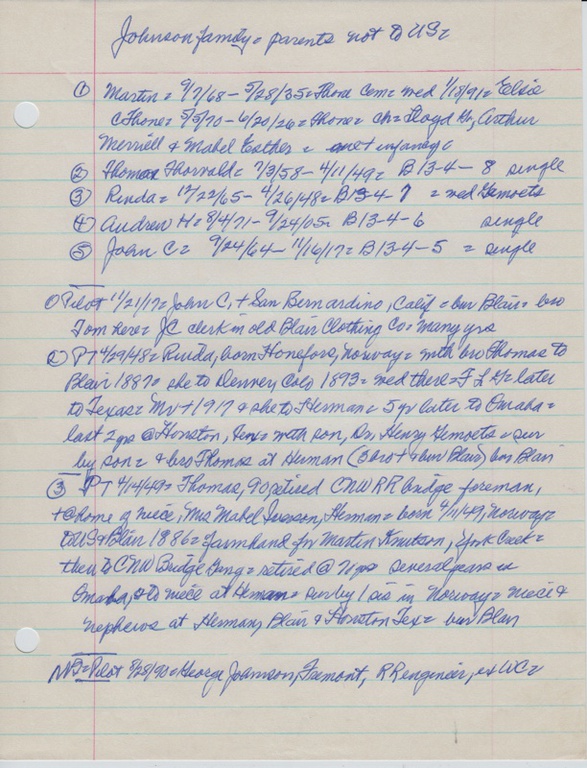 Johnson family = parents not to US =
① Martin = 9/7/68 - 5/28/35 = Thone Cem = med 1/18/91 = Elsie
C Thone = 5/5/70 - 6/20/26 = Thone = ch = Lloyd Dr, Arthur
Merrill & Mabel Esther = one + infancy =
② Thomas Thorvald = 7/3/58 - 4/11/49 = B 13-4 - 8 single
③ Rinda = 12/22/65 - 4/26/48 = B 13-4-7 = med Gemoets
④ Andrew H = 8/4/71 - 9/24/05 = B 13-4-6 single
⑤ John C = 9/24/64 - 11/16/17 = B 13-4-5 = single
① Pilot 11/21/17 = John C, + San Bernardino, Calif = bur Blair = bro
Tom here = JC clerk in old Blair Clothing Co = many yrs
② PT 4/29/48 = Rinda, born Honefors, Norway = with bro Thomas to
Blair 1887 = she to Denver, Colo 1893 = med there = F L G = later
to Texas = Mr + 1917 & she to Herman = 5 yr later to Omaha =
last 2 yrs @ Houston, Tex = with son, Dr. Henry Gemoets = sur
by son = & bro Thomas at Herman (3 bro + & bur Blair) bur Blair
③ PT 4/14/49 = Thomas, 90 retired CNW RR bridge foreman,
+ @ home of niece, Mrs Mabel Iverson, Herman = born 4/11/49, Norway =
to US & Blair 1886 = farmhand for Martin Knutson, York Creek =
then to CNW Bridge Gang = retired @ 71 yrs several years in
Omaha, & to niece at Herman = sur by 1 sis in Norway = niece &
nephews at Herman, Blair & Houston Tex = bur Blair
Pilot 8/28/90 = George Johnson, Fremont, RR engineer, ex WC =